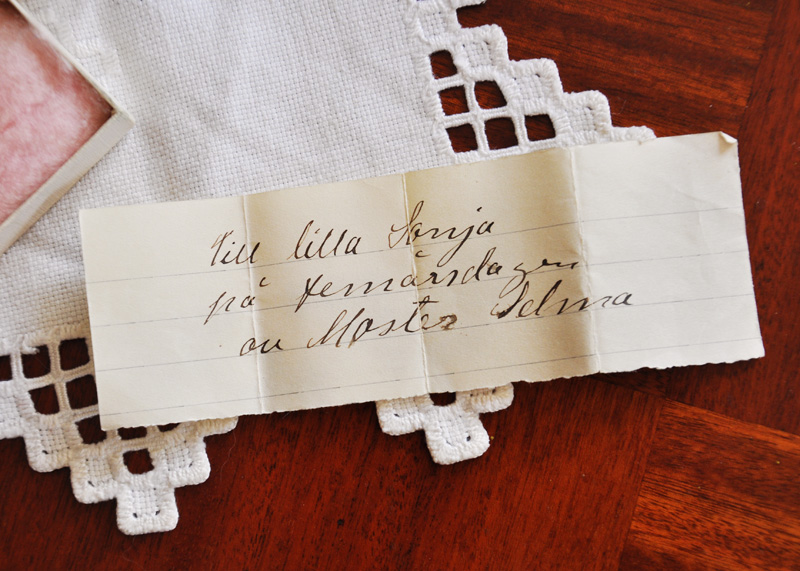 till lilla Sonja
på femårsdagen
av Moster Selma